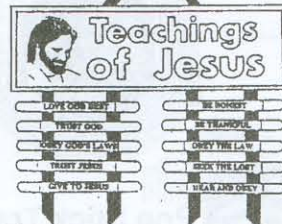 Teachings
of Jesus
LOVE GOD BEST
TRUST GOD
OBEY GOD'S LAWS
TRUST JESUS
GIVE TO JESUS
BE HONEST
BE THANKFUL
OBEY THE LAW
SEEK THE LOST
HEAR AND OBEY